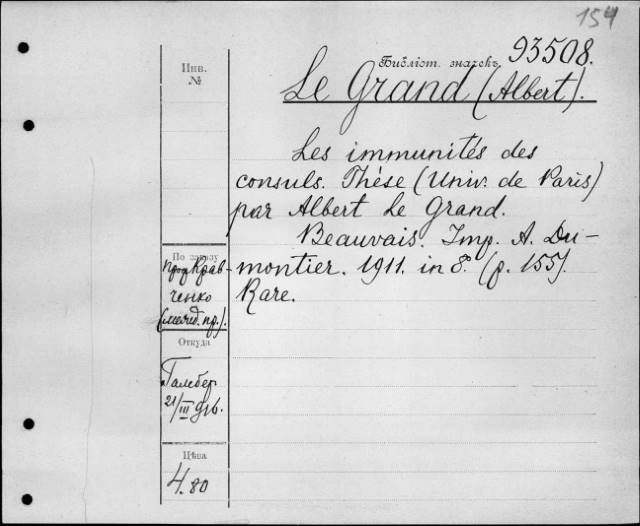 154
Библіот. значекъ 93508.
Инв.
№
Le Grand (Albert).
Les immunités des
consuls. Thèse (Univ. de Paris)
par Albert Le Grand.
Beauvais. Imp. A. Du-
montier. 1911. in 8º. (p. 155).
Rare.
По заказу
проф Крав-
ченко
(межд. пр.).
Откуда
21/III
Цѣна
4.80